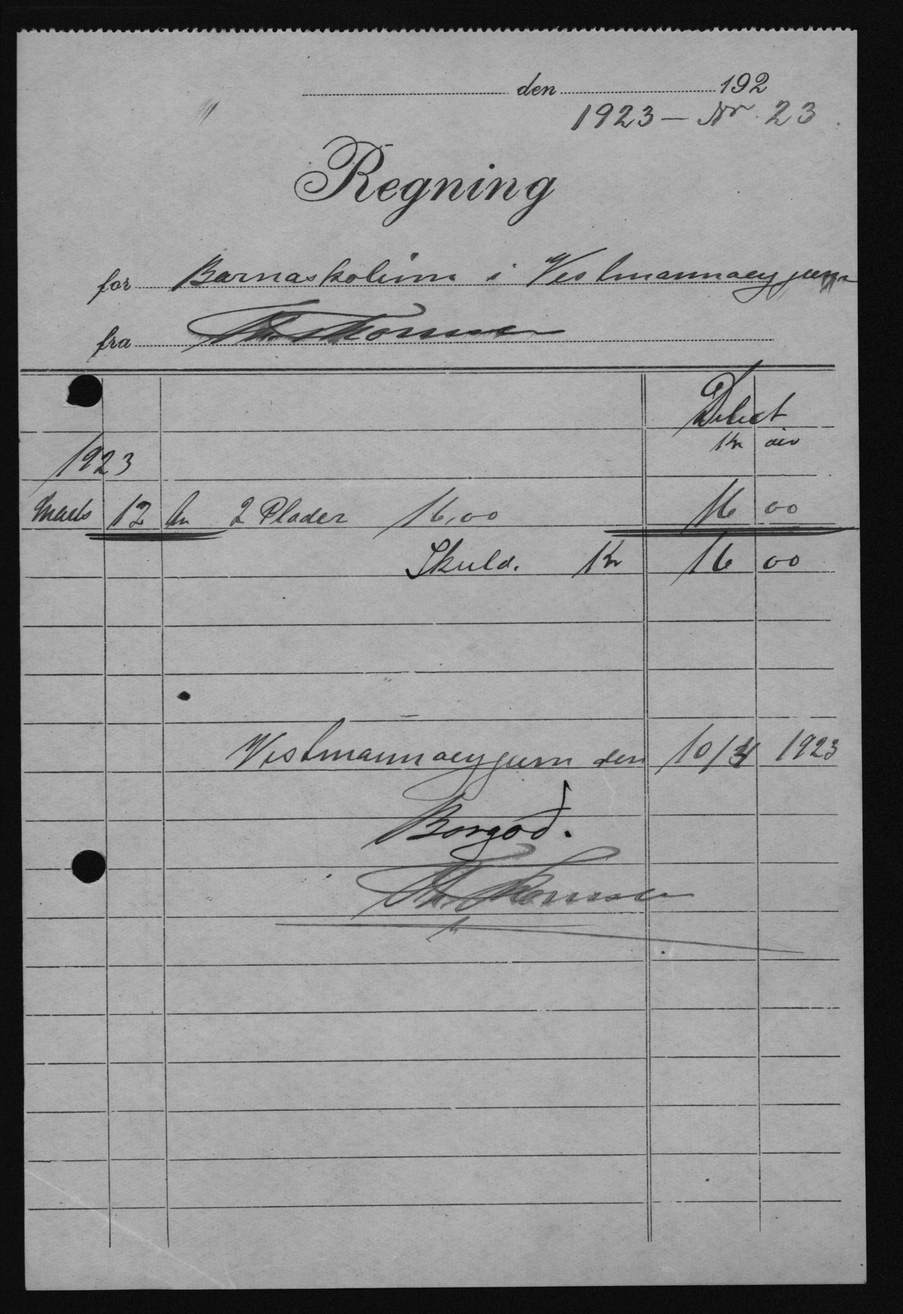 den 192
1923 — Nr. 23
Regning
for Barnaskolinn i Vestmannaeyjum
fra Th. Thomsen
Debet
1923 Kr aur
Marts 12 An 2 Plader 16,00 16 00
Skuld. Kr 16 00
Vestmannaeyjum den 10/4 1923
Borgað.
Th. Thomsen